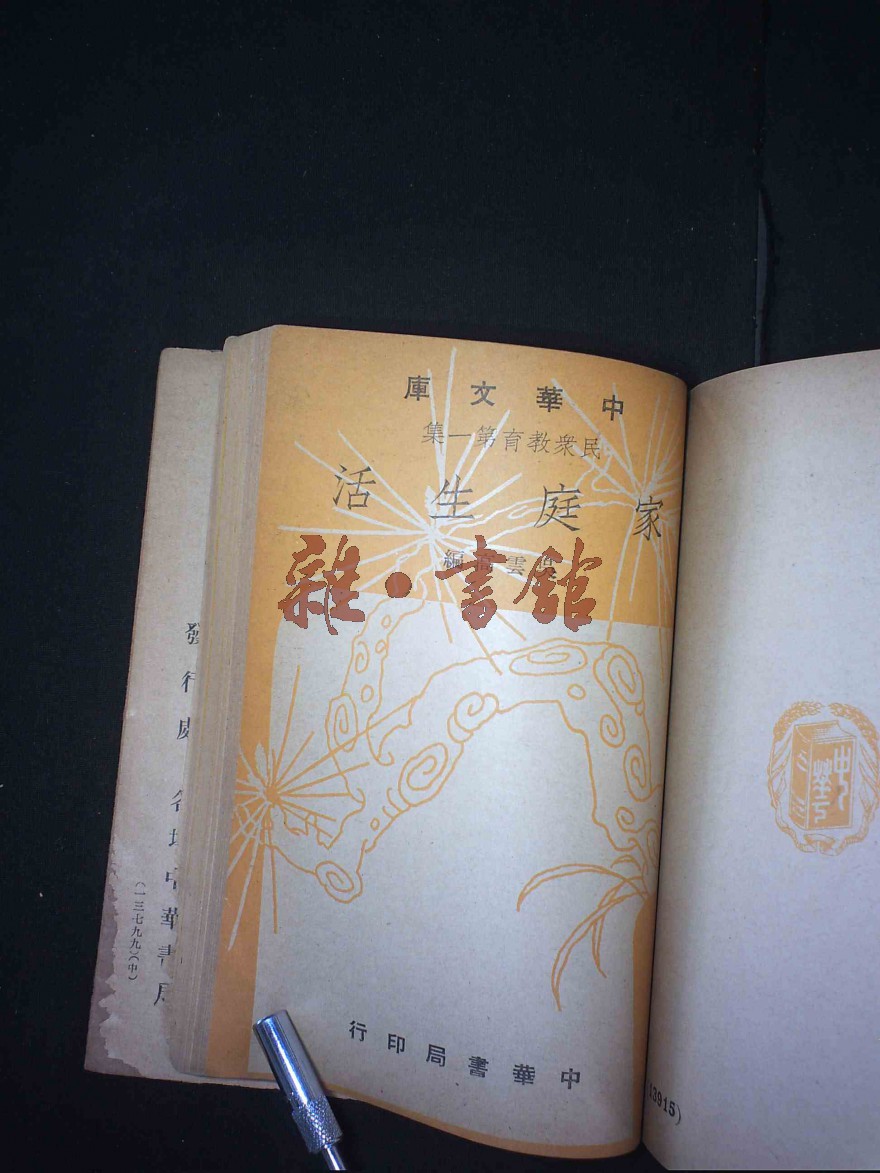 中華文庫
民衆教育第一集
家庭生活
雲
編
雜·書館
中華書局印行
發行處 各埠中華書局
(一三七九九)(中)
中華
13915)